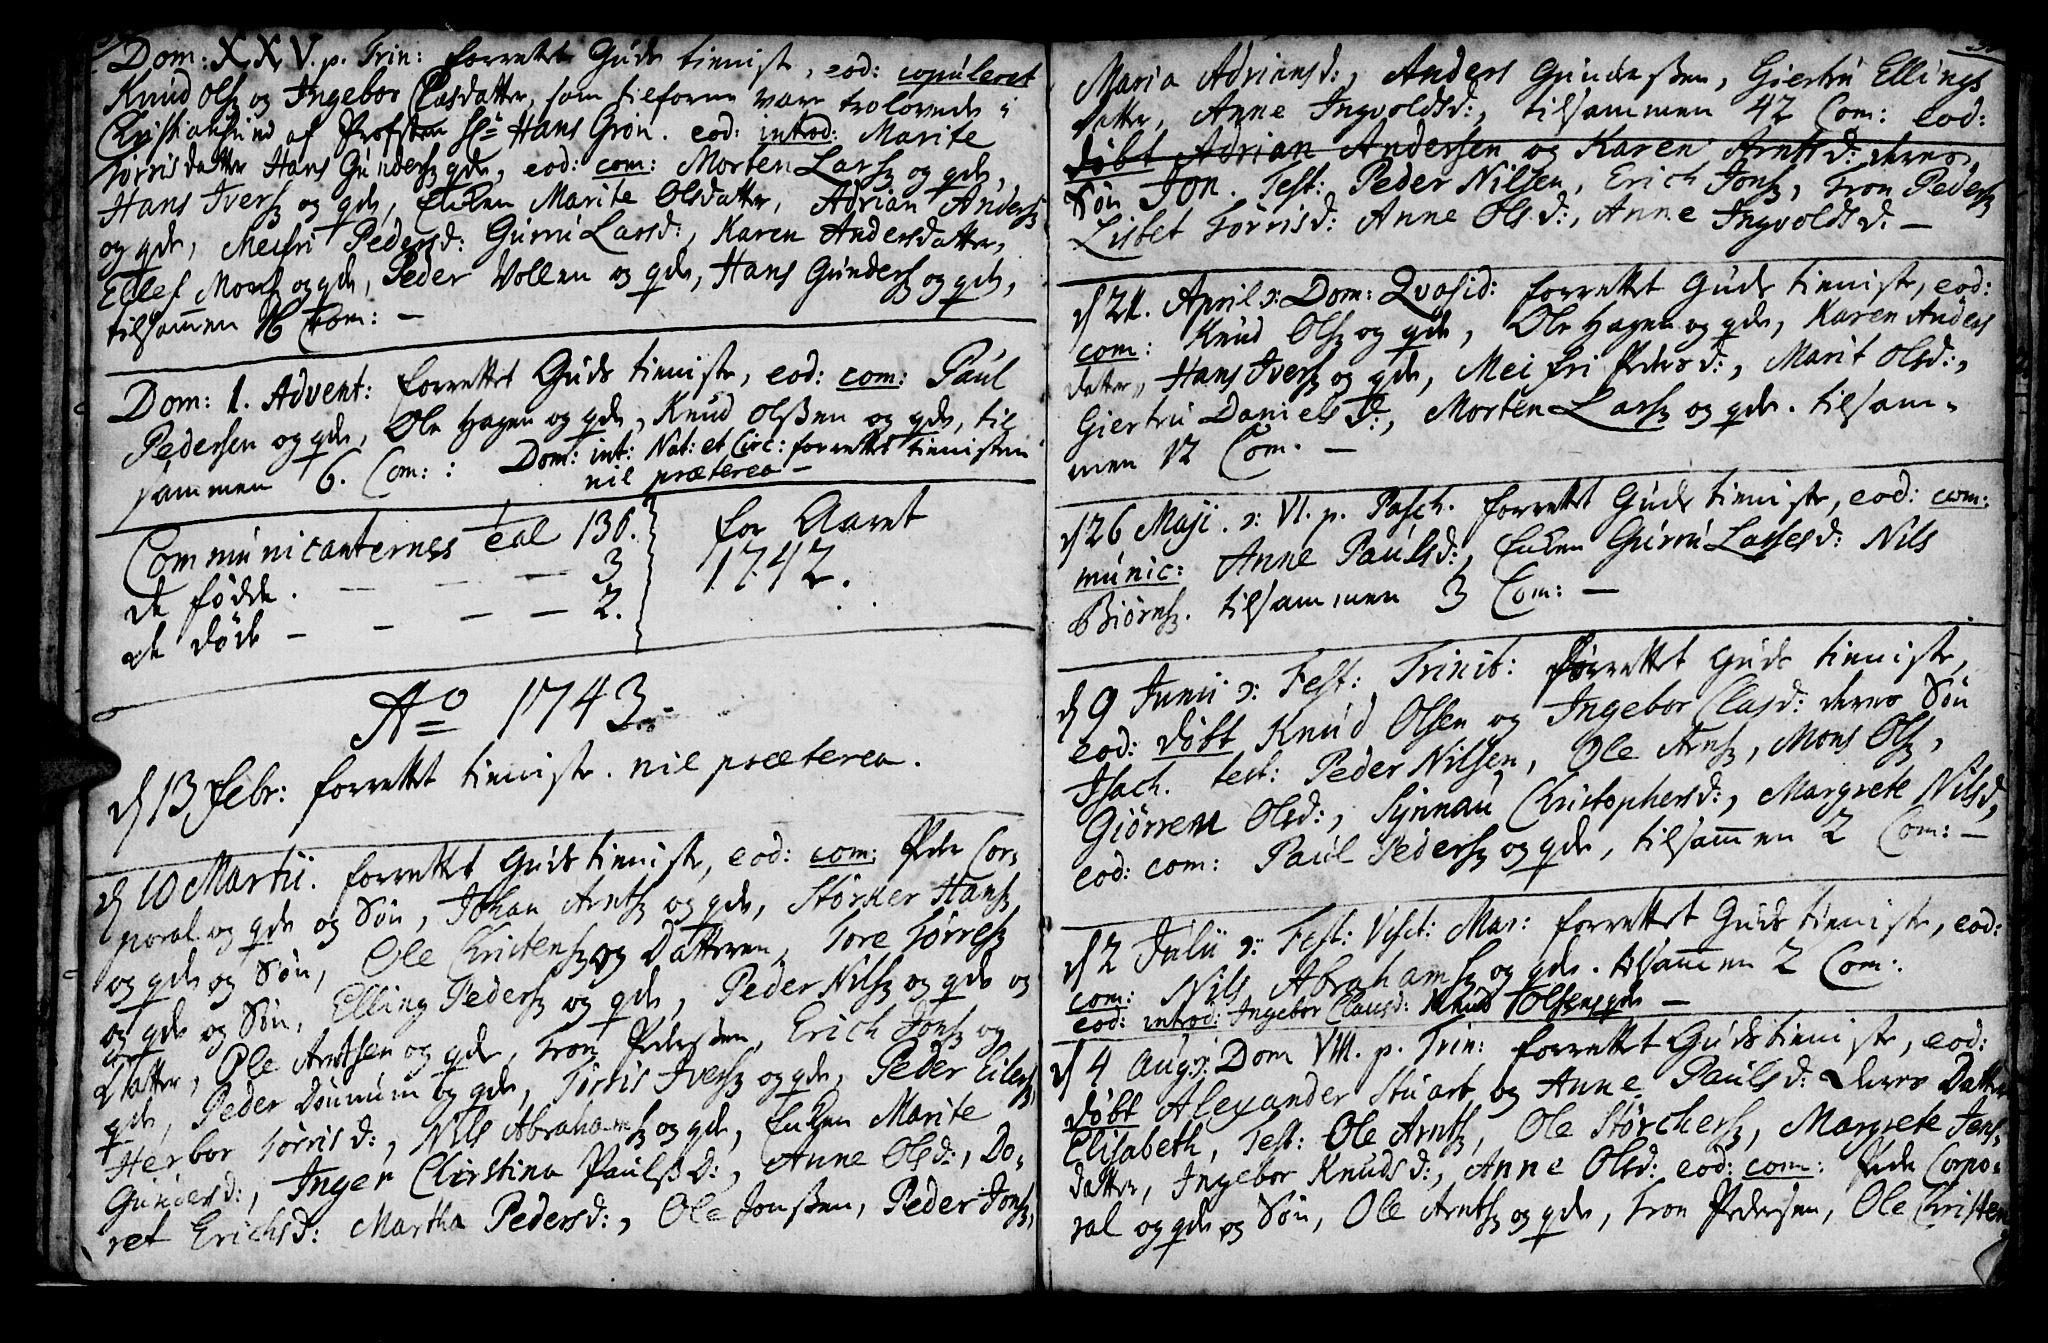 Dom: XXV. p. Trin: forrettet Guds tieniste, eod: copuleret
Knud Ols: og Ingebor Clasdatter, som tilforne vare trolovede i
Christiansund af Profsten Hr: Hans Grøn. eod: introd: Marite
Tørrisdatter Hans Gunders: qde, eod: com: Morten Lars: og qde,
Hans Ivers: og qde, Enken Marite Olsdatter, Adrian Anders:
og qde, Meifri Pedersd: Gurru Larsd:, Karen Andersdatter,
Ellef Mons: og qde, Peder Vollen og qde, Hans Gunders: og qde,
tilsammen 16 Com: —
Dom: 1. Advent: forrettet Guds tieniste, eod: com: Paul
Pedersen og qde, Ole Hagen og qde, Knud Olssen og qde, til
sammen 6. Com: : Dom: int: Nat: et Circ: forrettet tienisten
nil præterea —
Communicanternes tal 136. for Aaret
de fødde. — — — — 3 1742.
de døde — — — — 2.
Ao 1743.
d 13 Febr: forrettet tieniste. nil præterea.
d 10 Martii. forrettet Guds tieniste, eod: com: Peder Cor,
poral og qde og Søn, Johan Arnts: og qde, Størker Hans:
og qde og Søn, Ole Christens: og Datteren, Tore Tørres:
og qde og Søn, Elling Peders: og qde, Peder Nils: og qde og
Datter, Ole Arntsen og qde, Tron Pederssen, Erich Jons: og
qde, Peder Dønnum og qde, Tørris Ivers: og qde, Peder Eilers:
Herbor Tørrisd:, Nils Abrahams: og qde, Enken Marite
Gundersd:, Inger Christina Paulsd:, Anne Olsd:, Do,
ret Erichsd: Martha Pedersd:, Ole Jonssen, Peder Jons:,
Maria Adriansd:, Anders Gunderssen, Giertru Ellings
datter, Anne Ingvoldsd:, tilsammen 42 Com: eod:
døbt Adrian Andersen og Karen Arntsd: deres
Søn Jon. Test: Peder Nilsen, Erich Jons:, Tron Peders:
Lisbet Tørrisd: Anne Olsd:, Anne Ingvoldsd: —
d 21. April ɔ: Dom: Qvasid: forrettet Guds tieniste, eod:
com: Knud Ols: og qde, Ole Hagen og qde, Karen Anders
datter, Hans Ivers: og qde, Meifri Pedersd:, Marit Olsd:,
Giertru Danielsd:, Morten Lars: og qde. tilsam,
men 12 Com. —
d 26 Maji. ɔ: VI. p. Pasch. forrettet Guds tieniste, eod: com:
munic: Anne Paulsd:, Enken Gurru Lassesd: Nils
Biørns:. tilsammen 3 Com: —
d 9 Junii ɔ: Fest: Trinit: forrettet Guds tieniste,
eod: døbt Knud Olsen og Ingebor Clasd: deres Søn
Isach. test: Peder Nilsen, Ole Arns:, Mons Ols:,
Giørren Olsd:, Synnau Christophersd:, Margrete Nilsd,
eod: com: Paul Peders: og qde, tilsammen 2 Com: —
d 2 Julii ɔ: Fest: Visit: Mar: forrettet Guds tieniste, eod:
com: Nils Abrahams: og qde. tilsammen 2 Com:.
eod: introd: Ingebor Clausd: Knud Olsens qde —
d 4 Aug ɔ: Dom VIII. p. Trin: forrettet Guds tieniste, eod:
døbt Alexander Stuart og Anne Paulsd: deres Datter
Elisabeth, Test: Ole Arnts:, Ole Størchers:, Margrete Jens,
datter, Ingebor Knudsd:, Anne Olsd: eod: com: Peder Corpo,
ral og qde og Søn, Ole Arnts: og qde, Tron Pedersen, Ole Christen